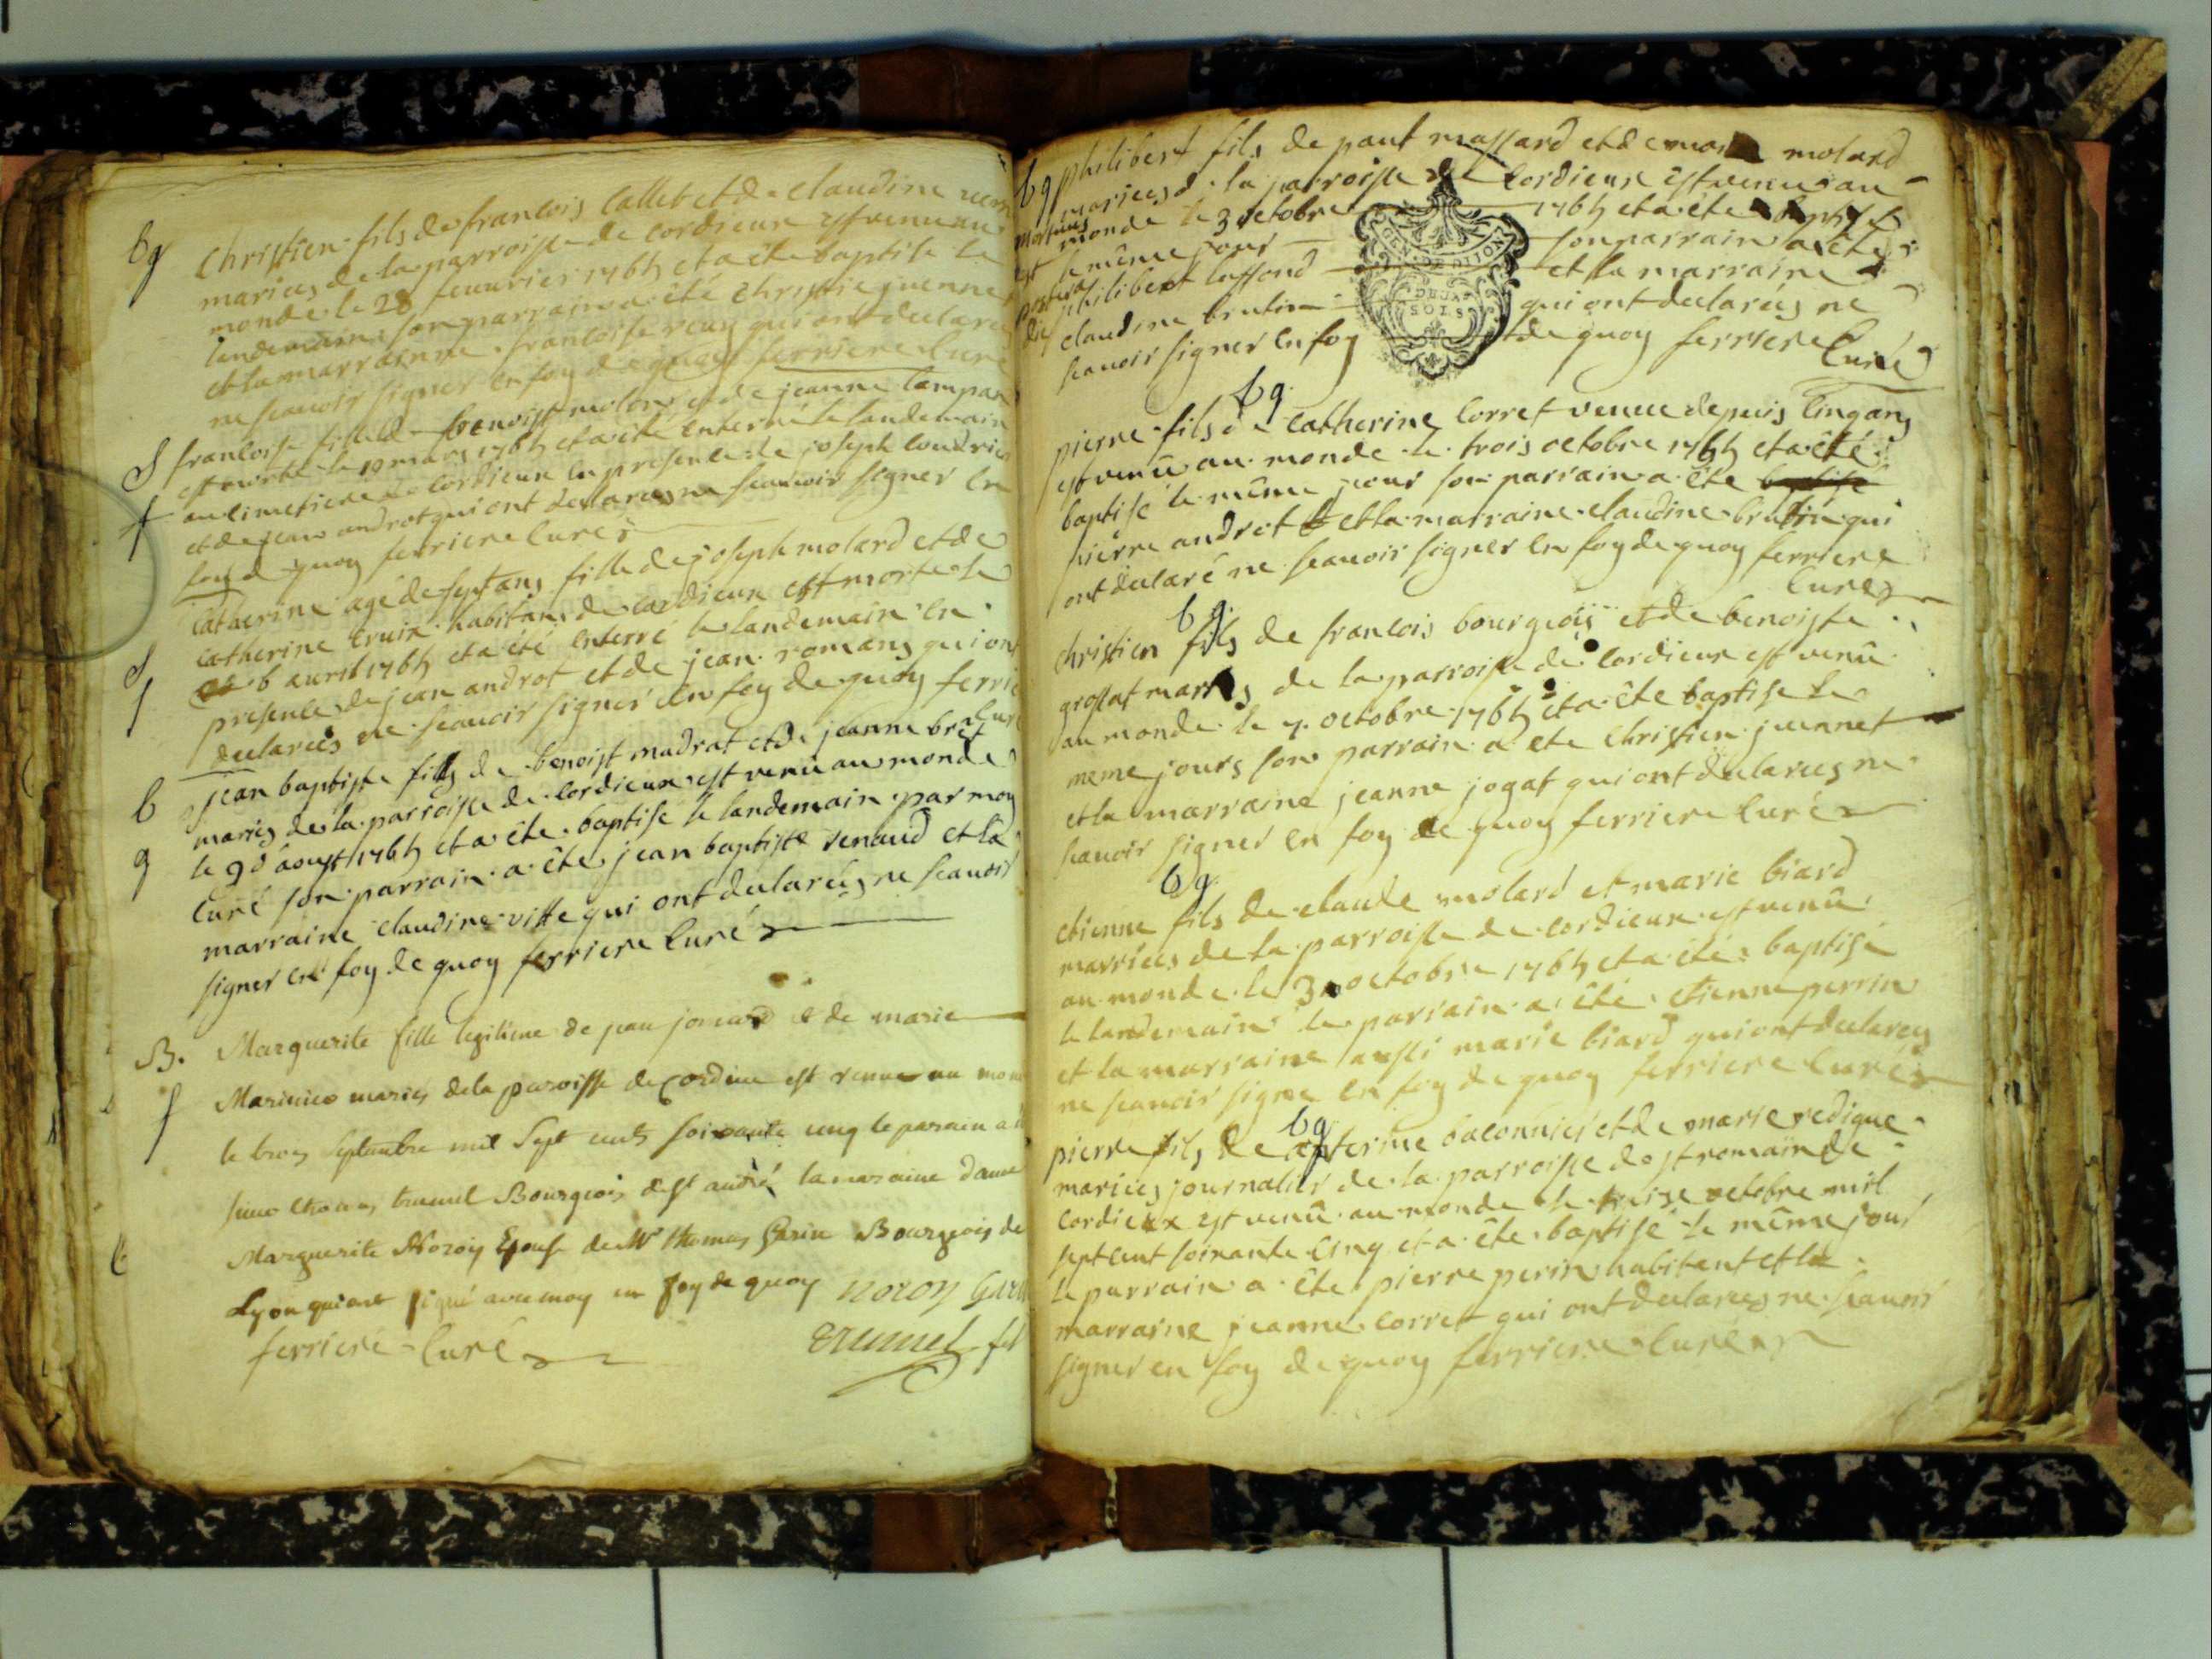 bg
Christien fils de francois Callet et de claudine
mariés de la parroisse de cordieux est venu au
monde le 28 feuurier 1765 et a été baptisé le
landemain son parrain a été Christie juennet
et la marrainne francoise qui ont declarés
ne scauoir signer en foy de quoy ferriere Curé
S
f
francoise fille de benoist molon et de jeanne
est morte le 19 mars 1765 et a été enterré le landemain
au cimetiere de Cordieux en presence de joseph
et de jean androt qui ont declarés ne scauoir signer en
foy de quoy ferriere Curé
S
f
Catherine agé de sept ans fille de joseph molard et de
catherine habitans de cordieux est morte le
6 auril 1765 et a été enterré le landemain en
presence de jean androt et de jean romans qui ont
declarés ne scauoir signer en foy de quoy ferriere
Curé
b
g
jean baptiste fils de benoist mudrat et de jeanne bret
mariés de la parroisse de Cordieux est venu au monde
le 9 d'aoust 1765 et a été baptisé le landemain par moy
Curé son parrain a été jean baptiste renaud et la
marraine claudine vitte qui ont declarés ne scauoir
signer en foy de quoy ferriere Curé
B.
f
Marguerite fille legitime de jean jomard et de marie
mariés de la paroisse de Cordieu est venue au monde
le trois Septembre mil Sept cents soixante cinq le parain a été
thomas Bourgeois de st andré la maraine dame
Marguerite Noroy Epouse de Mr thomas Garin Bourgeois de
Lyon qui ont signé avec moy en foy de quoy noroy Garin
ferriere Curé
bg
philibert fils de paul massard et de molard
mariées de la parroisse de Cordieux est venu au
monde le 3 octobre 1765 et a été baptisé
le même jour son parrain a été
philibert laffond et la marraine
claudine brutin qui ont declarés ne
scauoir signer en foy de quoy ferriere
Curé
GEN. DE DIJON
DEUX
SOLS
bg
pierre fils de Catherine Corret venue depuis Cinq ans
est venû au monde le trois octobre 1765 et a été
baptisé le même jour son parrain a été baptisé
pierre androt et la marraine claudine brutin qui
ont declaré ne scauoir signer en foy de quoy ferriere
Curé
bg
christien fils de francois bourgeois et de benoiste
grossat mariés de la parroisse de Cordieux est venû
au monde le 7. octobre 1765 et a été baptisé le
meme jours son parrain a ete Christien juennet
et la marraine jeanne jogat qui ont declarés ne
scauoir signer en foy de quoy ferriere Curé
bg
etienne fils de claude molard et marie biard
marriées de la parroisse de cordieux est venû
au monde le 3 octobre 1765 et a été baptisé
le landemain le parrain a été etienne perrin
et la marraine aussi marie biard qui ont declarés
ne scauoir signe en foy de quoy ferriere Curé
bg
pierre fils de baconnier et de marie redigue
mariées journalier de la parroisse de st romain de
Cordieux est venû au monde le treise octobre mil
sept cent soixante Cinq et a été baptisé le même jour
le parrain a été pierre perin habitent et la
marraine jeanne corret qui ont declarés ne scauoir
signer en foy de quoy ferriere Curé